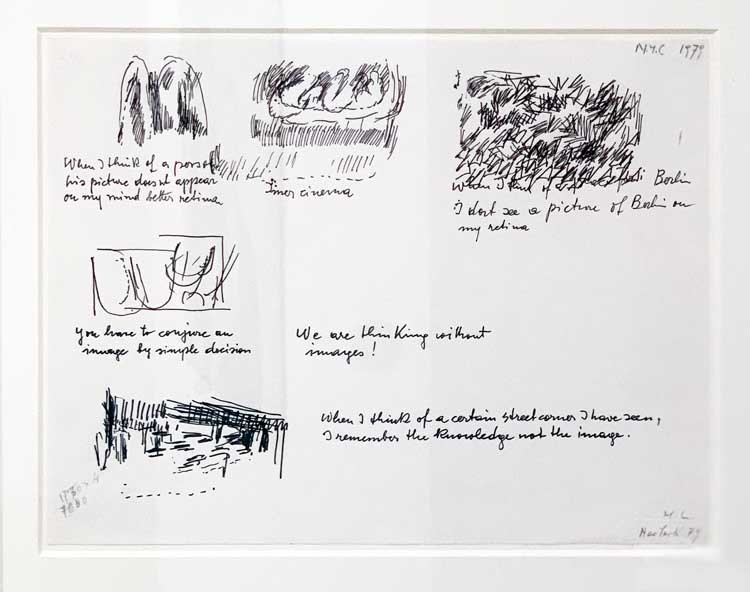 N.Y.C 1979
When I think of a person
his picture doesnt appear
on my mind better retina
Inner cinema
When I think of Berlin
I dont see a picture of Berlin on
my retina
You have to conjure an
image by simple decision
We are thinking without
images!
When I think of a certain streetcorner I have seen,
I remember the knowledge not the image.
M L
New York 79